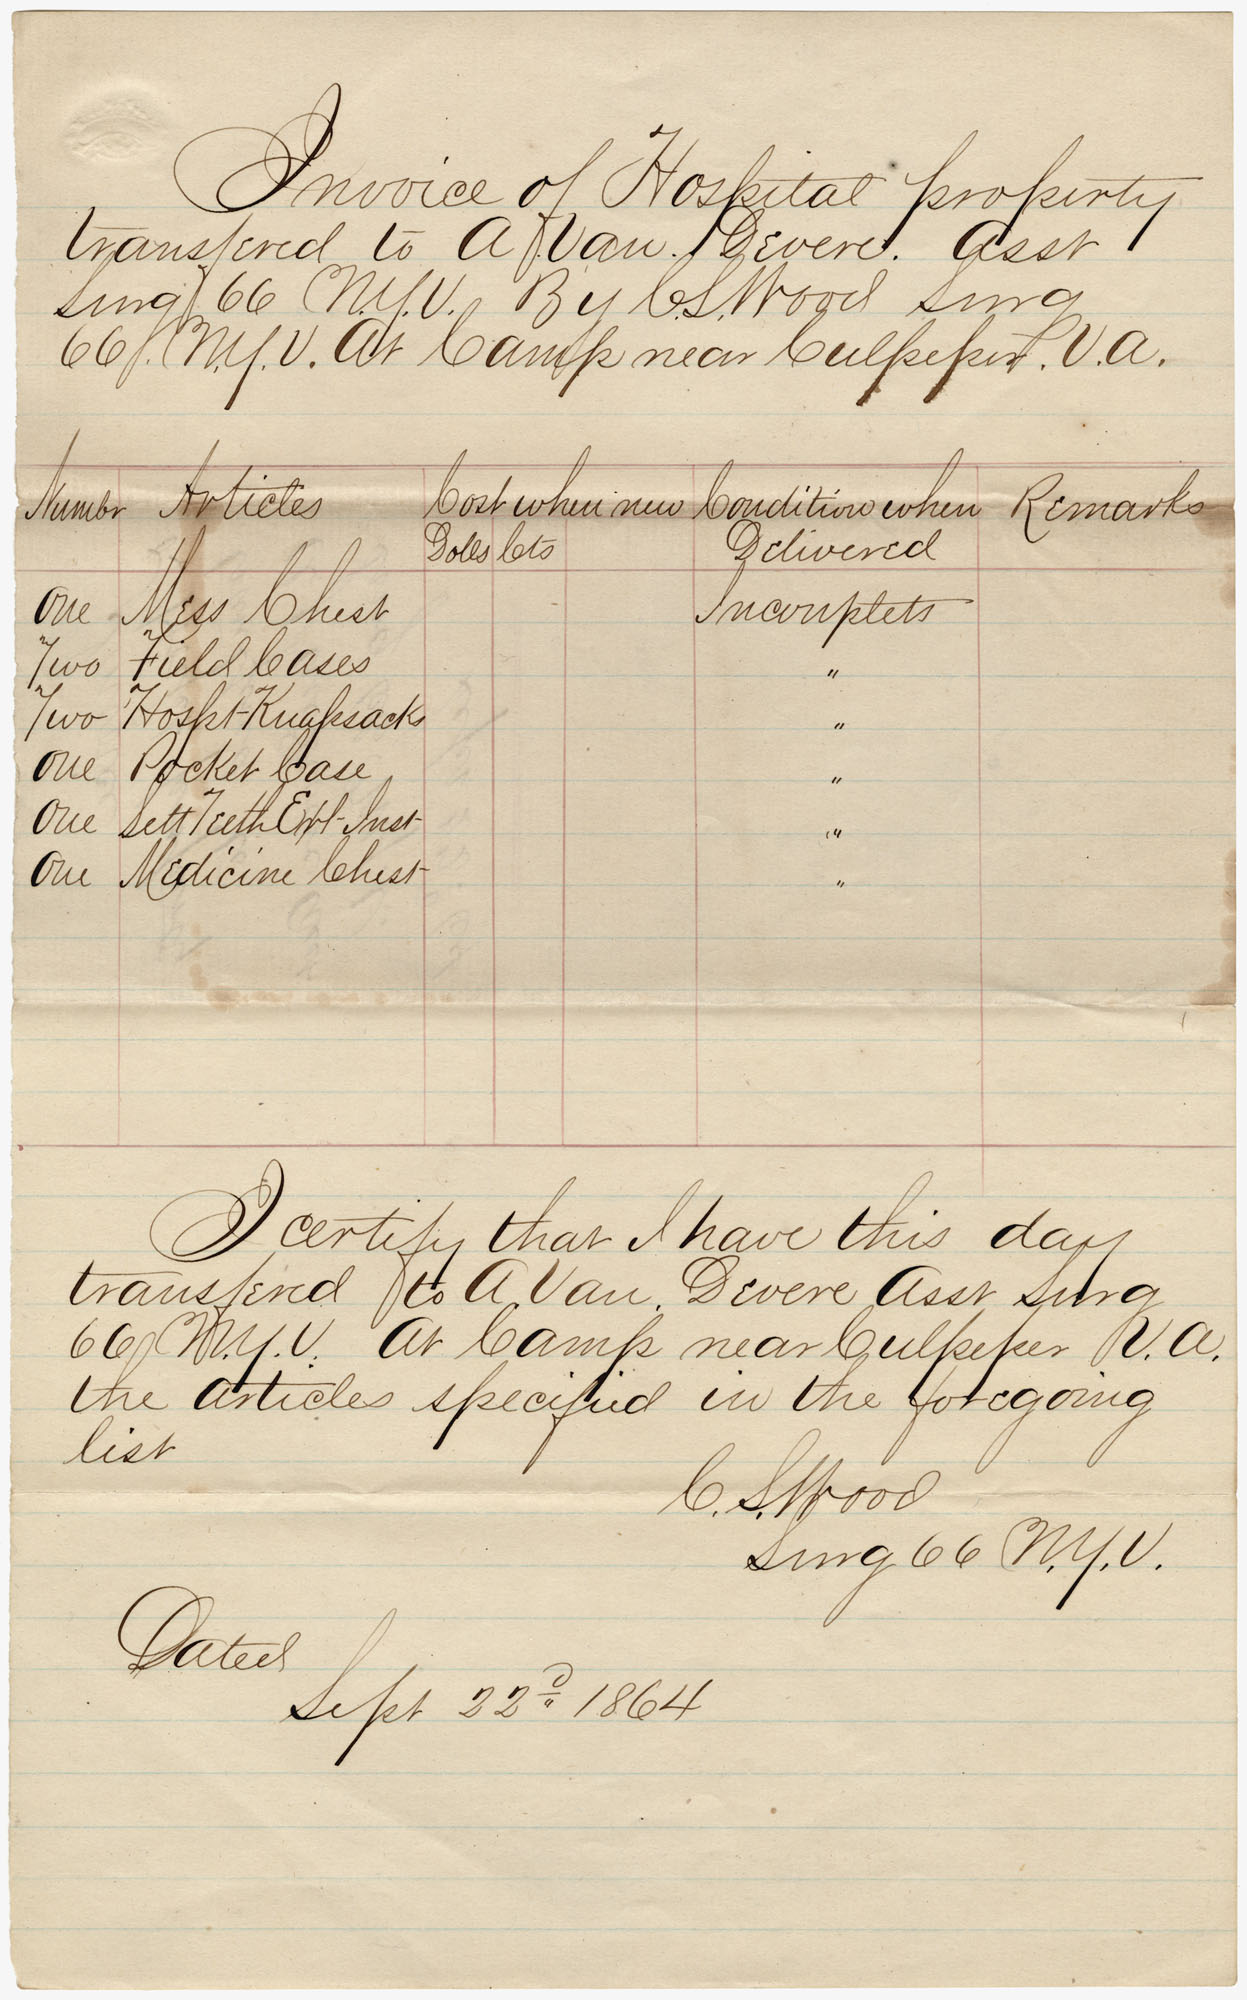 Invoice of Hospital property
transfered to A Van. Devere. Asst
Surg 66 N.Y.V. By C.S. Wood Surg
66 N.Y.V. At Camp near Culpeper. V.A.
Number Articles Cost when new Condition when Remarks
Dolls Cts Delivered
One Mess Chest Incomplete
Two Field Cases "
Two Hospt Knapsacks "
One Pocket Case "
One Sett Teeth Ext Inst "
One Medicine Chest "
I certify that I have this day
transfered to A. Van. Devere Asst Surg
66 N.Y.V. At Camp near Culpeper V.A.
the articles specified in the foregoing
list
C. S. Wood
Surg 66 N.Y.V.
Dated
Sept 22d 1864